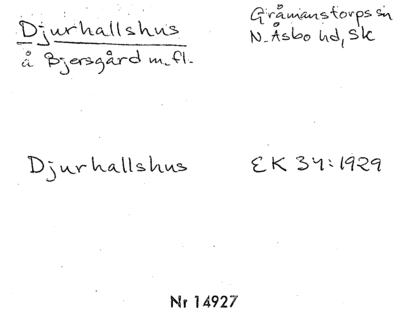 Djurhallshus
å Bjersgård m.fl.
Gråmanstorps sn
N. Åsbo hd, Sk
Djurhallshus
EK 34:1929
Nr 14927